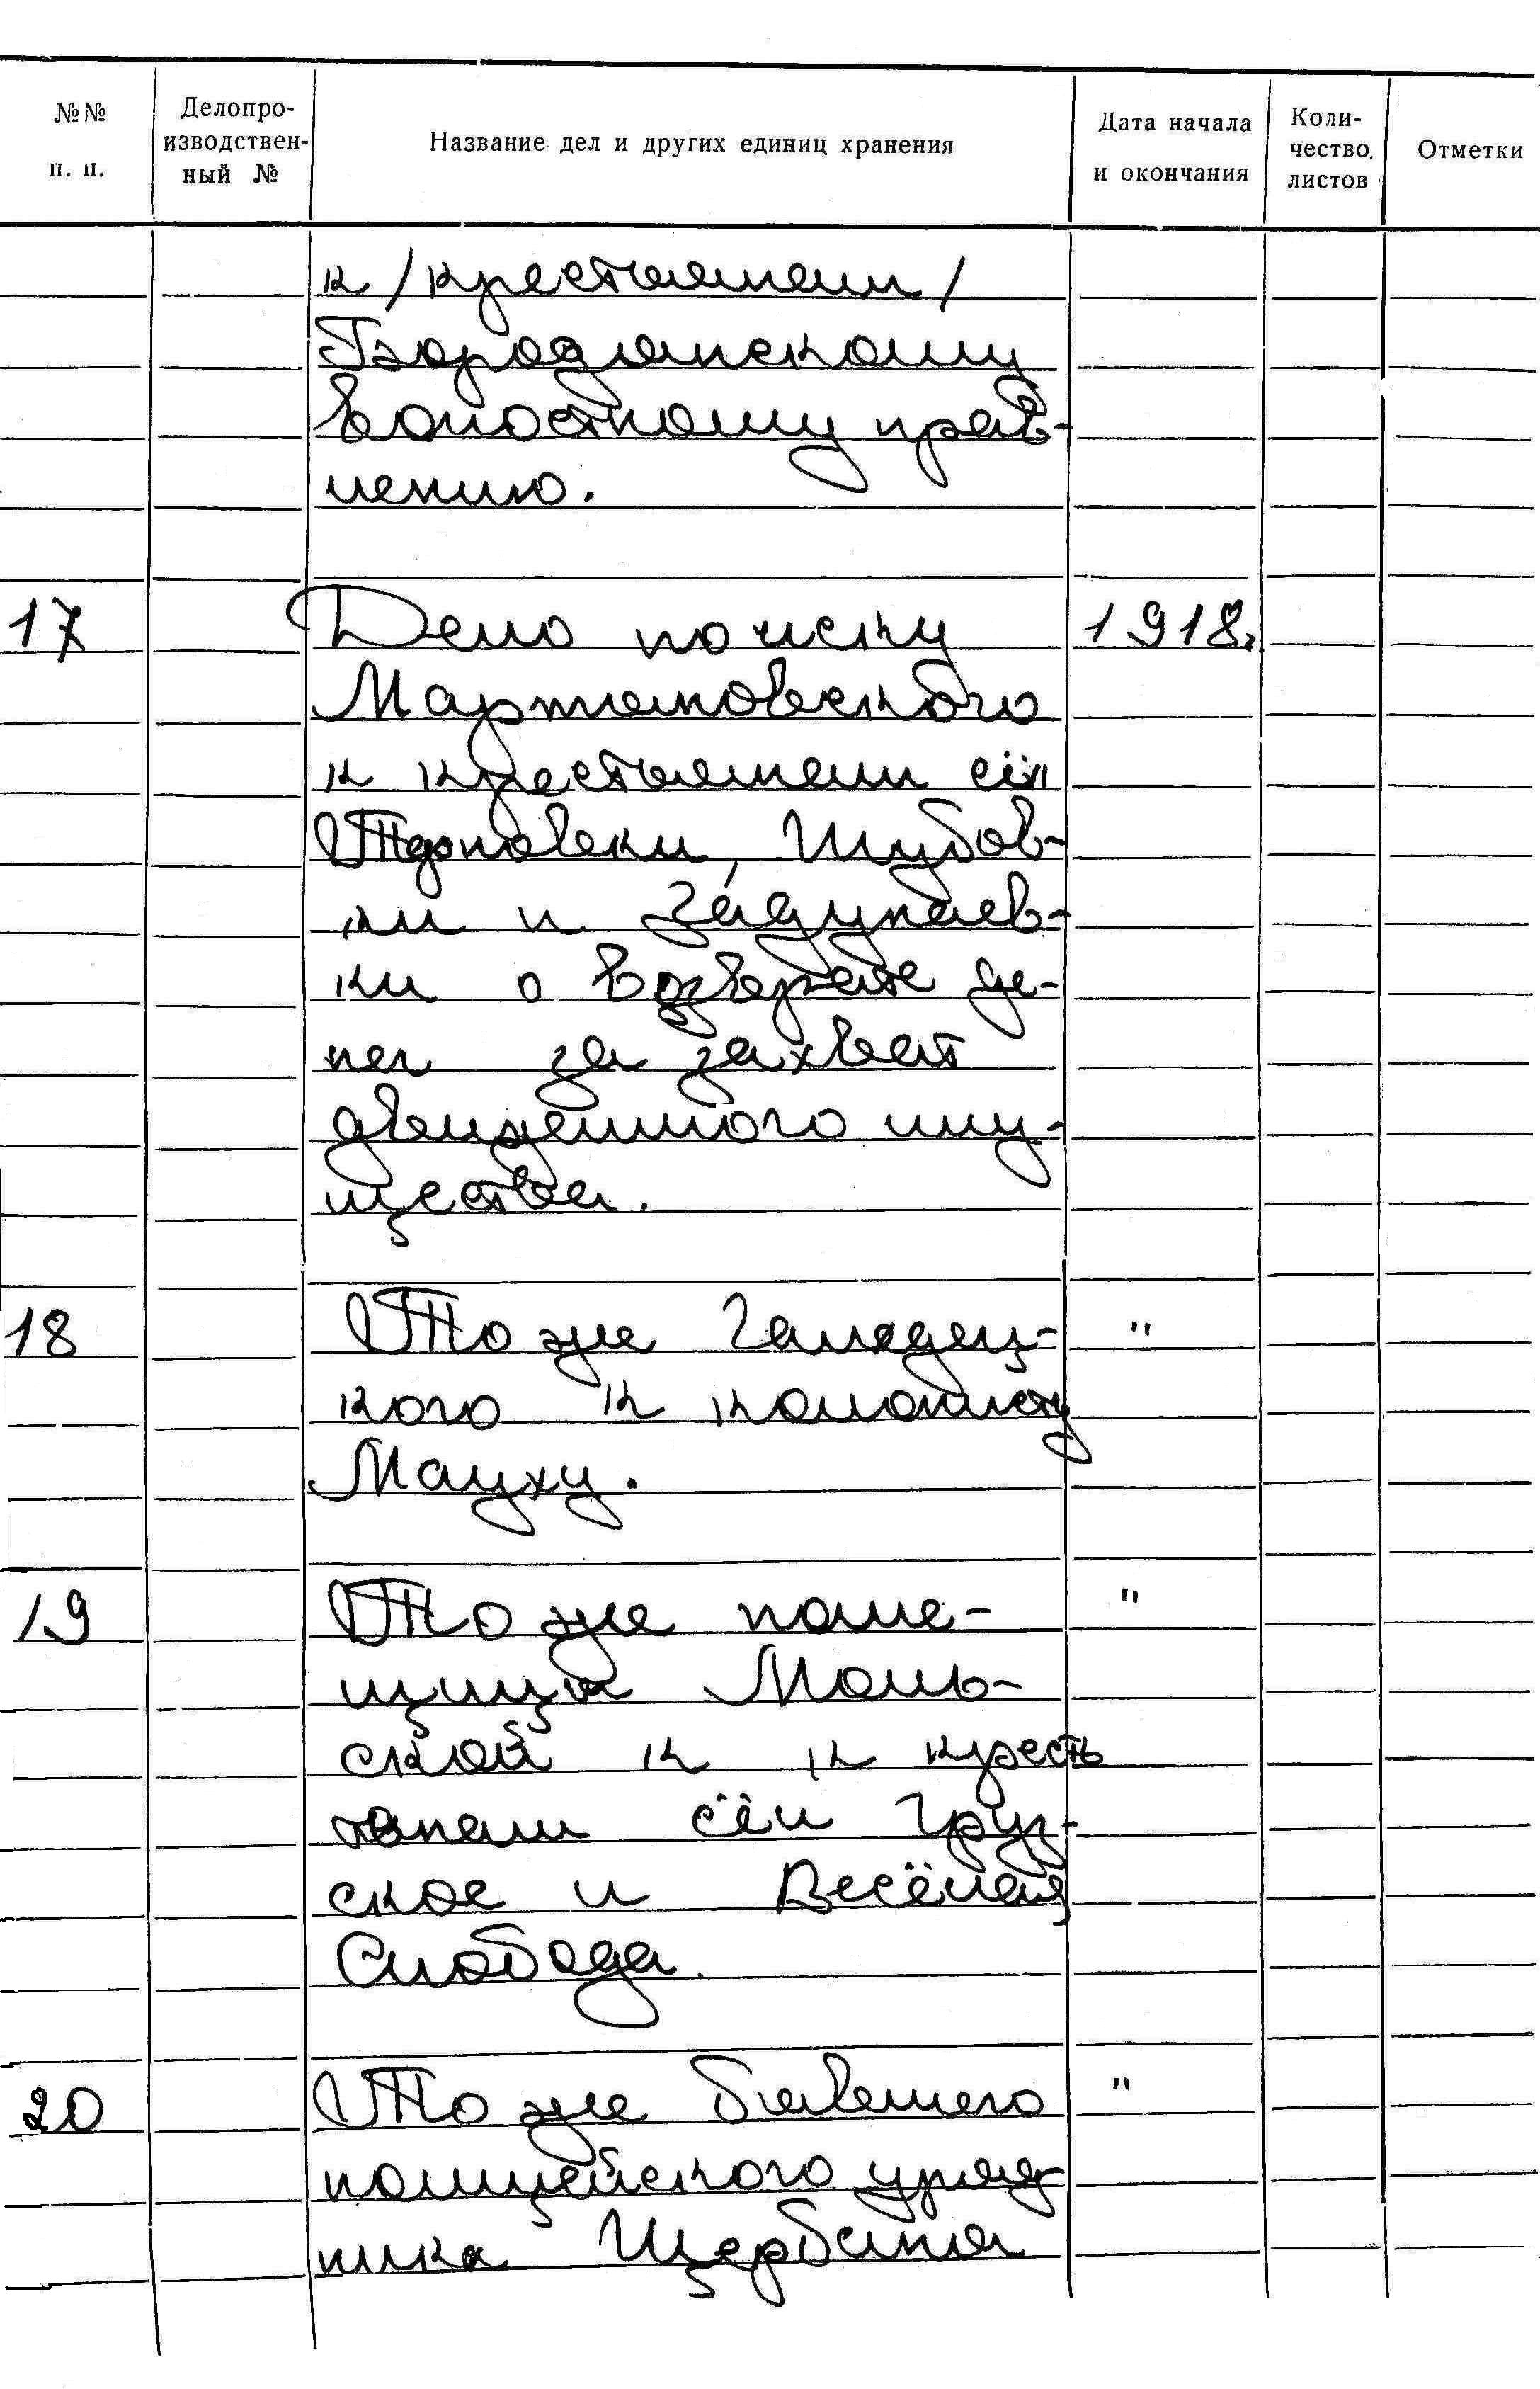 №№ п. п.
Делопро-
изводствен-
ный №
Название дел и других единиц хранения
Дата начала
и окончания
Коли-
чество
листов
Отметки
к /крестьянам/
Бородянскому
волостному прав-
лению.
17 Дело по иску 1918г.
Мартыновского
к крестьянам сёл
Терновски, Шубов-
ки и Задунаев-
ки о возврате де-
нег за захват
движенного иму-
щества.
18 То же "
кого к колонисту
Мауху.
19 То же поме- "
щицы Моль-
ской к к кресть
янам сёл Груз-
ское и Весёлая
Слобода.
20 То же бывшего "
полицейского уряд-
ника Щербина